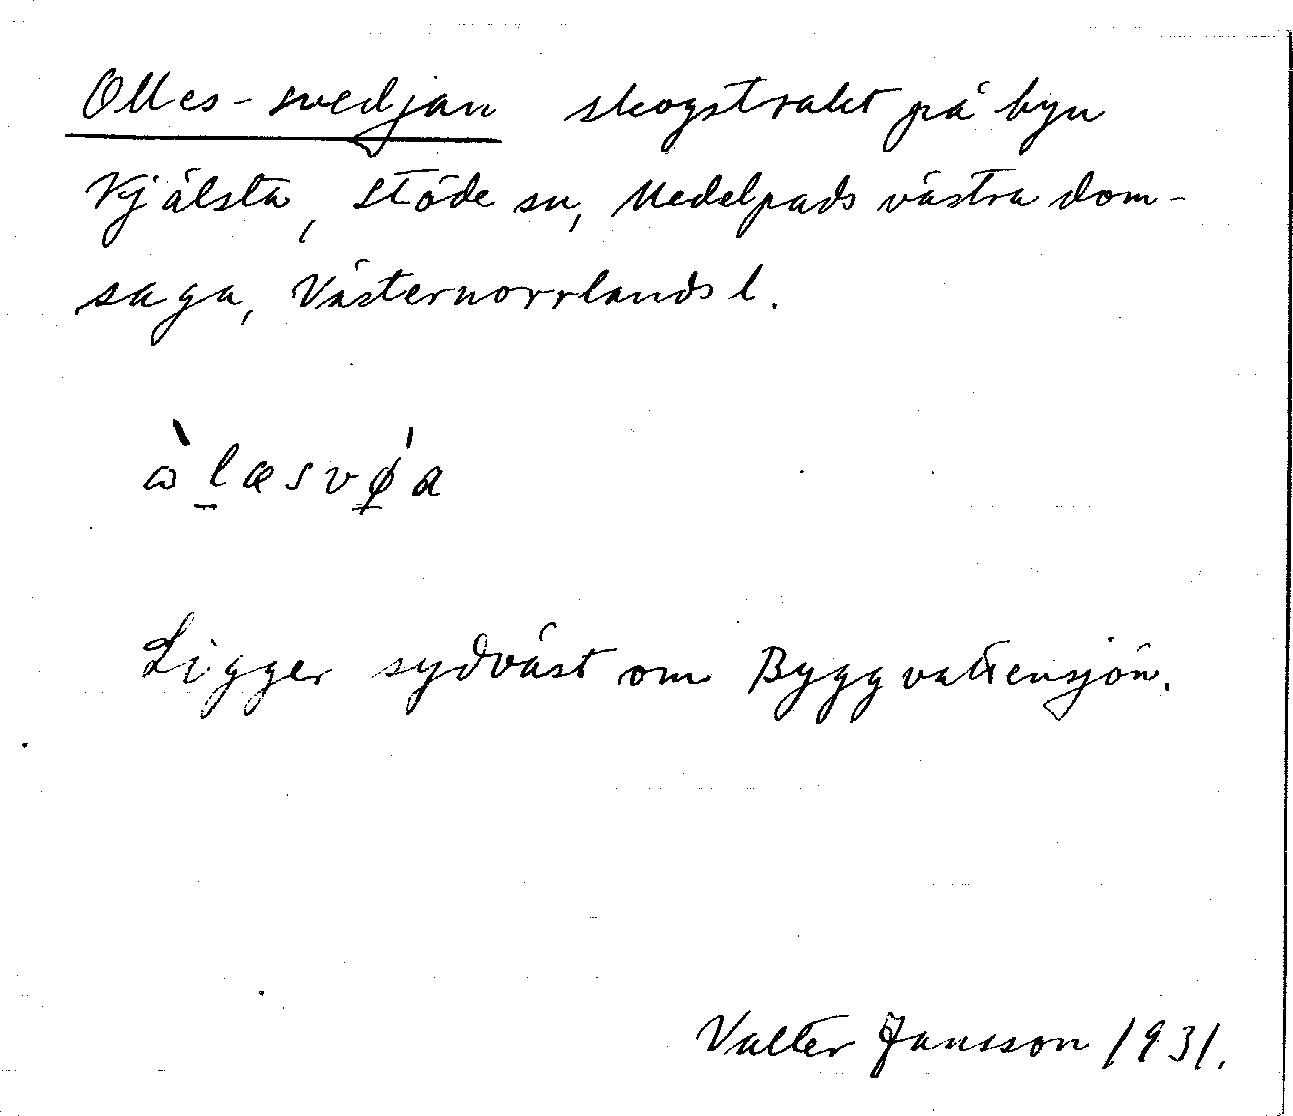 Olles-svedjan skogstrakt på byn
Kjälsta, Stöde sn, Medelpads västra dom-
saga, Västernorrlands l.
Ligger sydväst om Byggvattensjön.
Valter Jansson 1931.